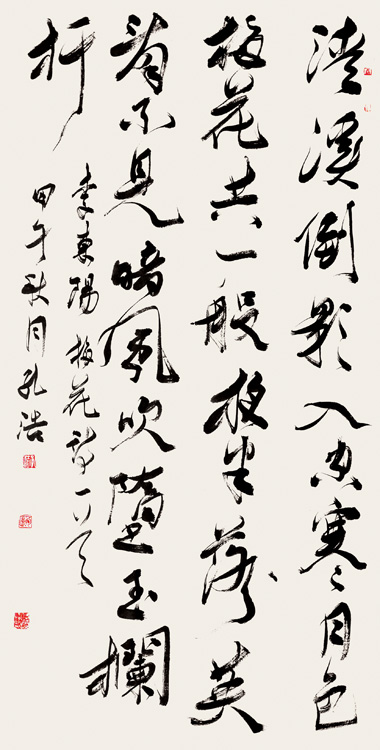 清溪倒影入空寒月色
梅花共一般夜半落英
看不見暗風吹墮玉欄
杆
李東陽梅花詩一首
甲午秋月孔浩